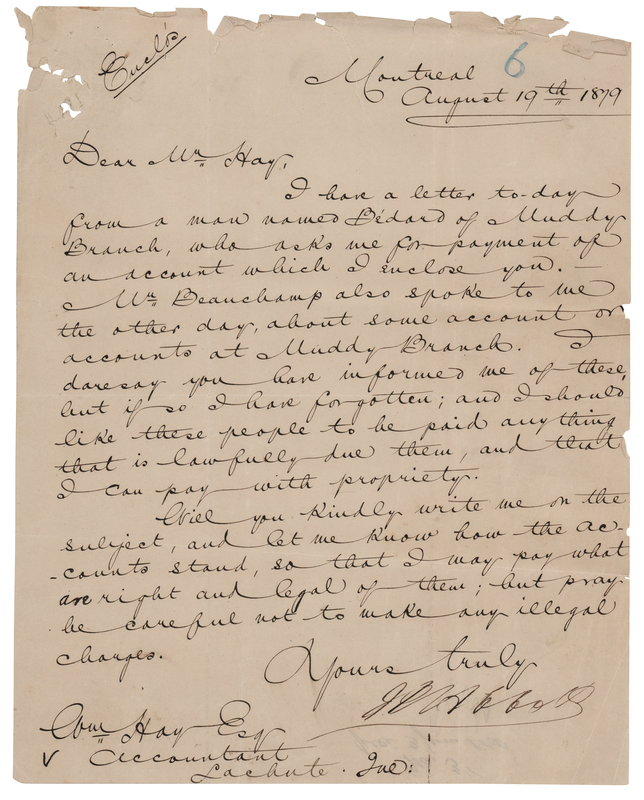 Enclo
6
Montreal
August 19th 1879
Dear Mr Hay,
I have a letter to-day
from a man named Bédard of Muddy
Branch, who asks me for payment of
an account which I enclose you. –
Mr Beauchamp also spoke to me
the other day, about some account or
accounts at Muddy Branch. I
daresay you have informed me of these,
but if so I have forgotten; and I should
like these people to be paid anything
that is lawfully due them, and that
I can pay with propriety.
Will you kindly write me on the
subject, and let me know how the ac-
-counts stand, so that I may pay what
are right and legal of them; but pray
be careful not to make any illegal
charges.
Yours truly
JJC Abbott
Wm Hay Esq
Accountant
Lachute. Que: